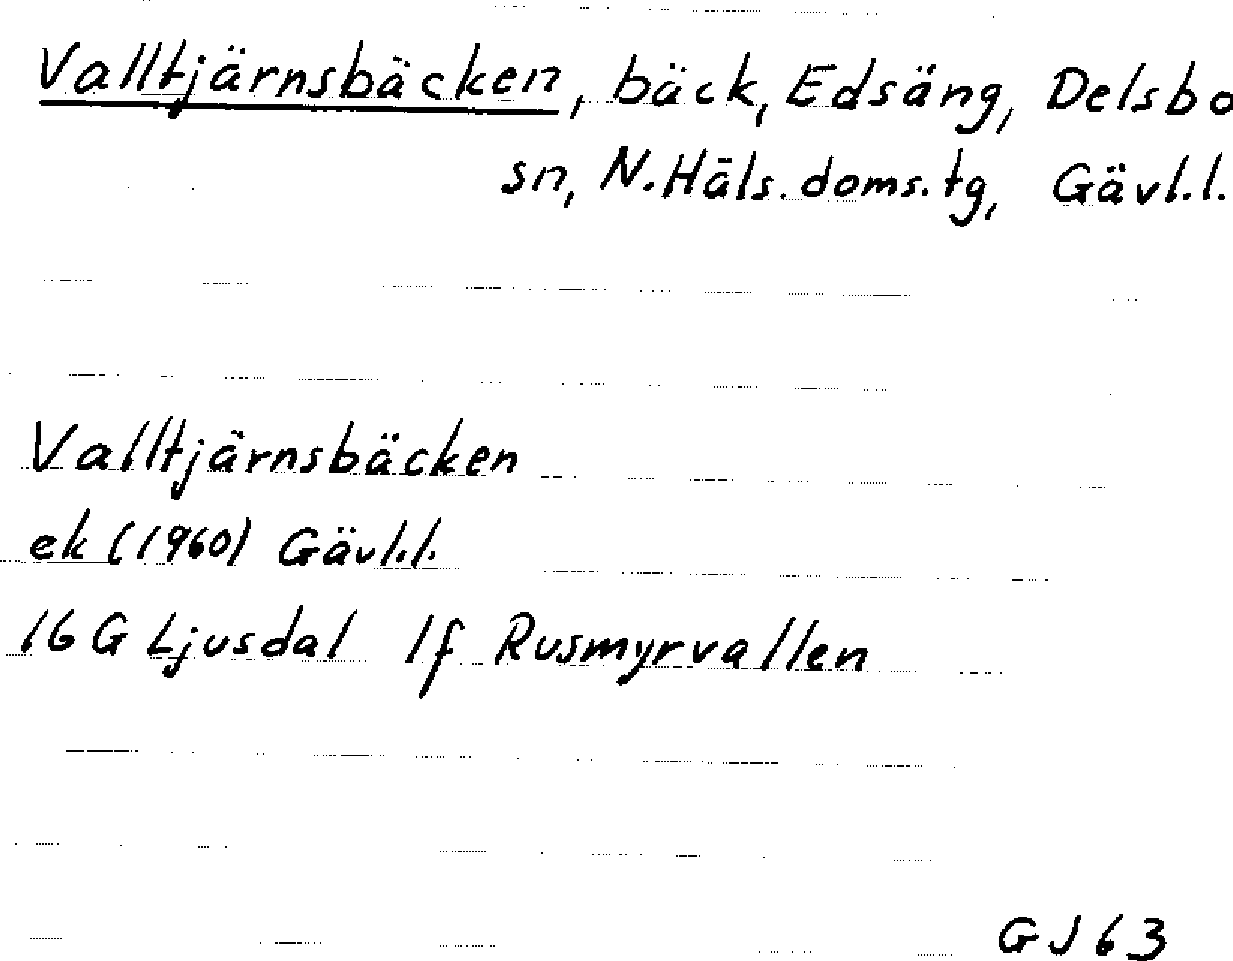 Valltjärnsbäcken, bäck, Edsäng, Delsbo
sn, N. Häls. doms. tg, Gävl.l.
Valltjärnsbäcken
ek (1960) Gävl.l.
16 G Ljusdal lf Rusmyrvallen
GJ 63